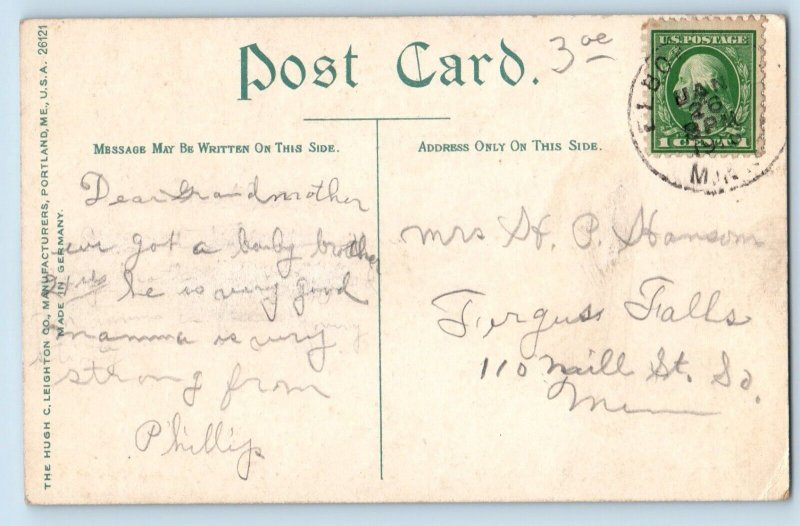 Post Card.
3 oe
U.S. POSTAGE
1 CENT 1
MESSAGE MAY BE WRITTEN ON THIS SIDE.
ADDRESS ONLY ON THIS SIDE.
Dear Grandmother
got a baby brother
he is very good
mamma is very
strong from
Phillip
Mrs H. P. Hansom
Ferguss Falls
110 naill St. So.
Minn
THE HUGH C. LEIGHTON CO., MANUFACTURERS, PORTLAND, ME., U.S.A. 26121
MADE IN GERMANY.